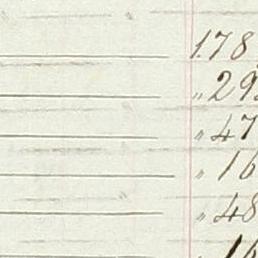 178
" 29
" 47
" 16
" 48
" 16